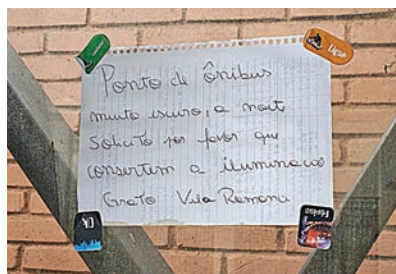 Ponto de ônibus
muito escuro, a noite
Solicito por favor que
consertem a iluminacao
Grato Vila Romana
Ligue